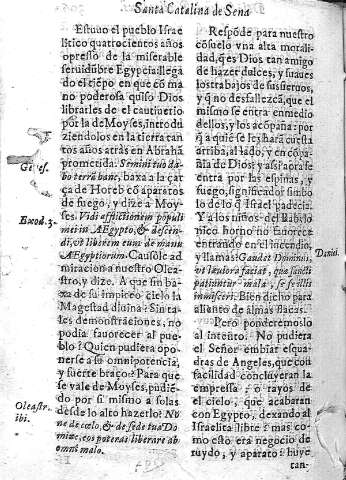 Santa Catalina de Sena
Estuuo el pueblo Israe
litico quatrocientos años
opresso de la miserable
seruidũbre Egypcia: llega
do el tiẽpo en que cõ ma
no poderosa quiso Dios
librarles del cautiuerio
por la de Moyses, introdu
ziendolos en la tierra tan
tos años atràs en Abrahã
prometida. Semini tuo da-
bo terrã hanc, baxa a la çar
ça de Horeb cõ aparatos
de fuego, y dize a Moy-
ses. Vidi afflictionem populi
mei in AEgypto, & descen-
di, vt liberem eum de manu
AEgyptiorum. Causóle ad
miracion a nuestro Olea-
stro, y dize. A que fin ba-
xa de su impireo cielo la
Magestad diuina? Sin ta-
les demonstraciones, no
podia fauorecer al pue-
blo? Quien pudiera opo-
nerse a su omnipotencia,
y fuerte braço? Para que
se vale de Moyses, pudiẽ-
do por si mismo a solas
desde lo alto hazerlo? No
ne de cœlo, & de sede tua Do
mine, eos poteras liberare ab
omni malo.
Genes.
Exod. 3.
Oleastr.
ibi.
Respõde para nuestro
cõsuelo vna alta morali-
dad, q̃ es Dios tan amigo
de hazer dulces, y suaues
los trabajos de sus sieruos,
y q̃ no desfallezcã, que el
mismo se entra en medio
dellos, y los acõpaña: por
q̃ a quie se les hará cuesta
arriba, al lado, y en cõpa-
ñia de Dios; y assi para se
entra por las espinas, y
fuego, significador simbo
lo de lo q̃ Israel padecia.
Y a los niños del Babilo
nico horno no fauorece
entrando en el incendio,
y llamas: Gaudet Dominus,
vt leuiora faciat, quæ sancti
patiuntur mala, se se illis
inmisceri. Bien dicho para
aliento de almas flacas.
Pero ponderemoslo
al intento. No pudiera
el Señor embiar esqua-
dras de Angeles, que con
facilidad concluyeran la
empressa; o rayos de
el cielo, que acabaran
con Egypto, dexando al
Israelita libre? mas co-
mo esto era negocio de
ruydo, y aparato: huye
tan-
Daniel.